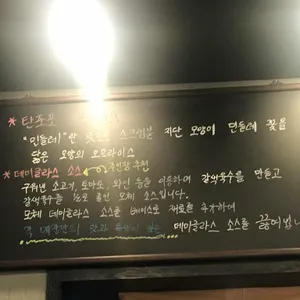 * 탄포포
"민들레"란 뜻으로 스크램블 지단 모양이 민들레 꽃을
닮은 모양의 오므라이스
* 데미글라스 소스 주인장 추천
구워낸 소고기, 토마토, 와인 등을 이용하여 갈색육수를 만들고
갈색육수를 졸인 모체 소스입니다.
모체 데미글라스 소스를 베이스로 재료를 추가하여
각 매장만의 맛과 데미글라스 소스를 끓여냅니